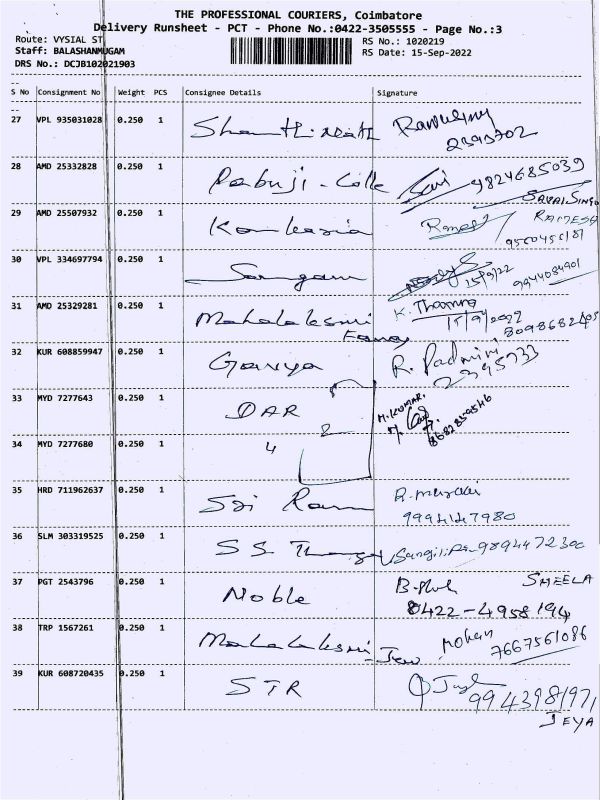 THE PROFESSIONAL COURIERS, Coimbatore
Delivery Runsheet - PCT - Phone No.:0422-3505555 - Page No.:3
Route: VYSIAL ST
RS No.: 1020219
Staff: BALASHANMUGAM
RS Date: 15-Sep-2022
DRS No.: DCJB102021903
S No Consignment No Weight PCS Consignee Details Signature
27 VPL 935031028 0.250 1
2393702
28 AMD 25332828 0.250 1 Pabuji - 9824685039
29 AMD 25507932 0.250 1 Ramesh RAMESH
30 VPL 334697794 0.250 1 Sangam 15/9/22 9944084901
31 AMD 25329281 0.250 1 Mahalakshmi Fancy K. 15/9/2022
8098682403
32 KUR 608859947 0.250 1 Gavya R. Padmini
2395733
33 MYD 7277643 0.250 1 DAR 2 M. KUMAR.
34 MYD 7277680 0.250 1 4
35 HRD 711962637 0.250 1 Sri Ram
9994147980
36 SLM 303319525 0.250 1 S S 9894472300
37 PGT 2543796 0.250 1 Noble SHEELA
0422-4958194
38 TRP 1567261 0.250 1 Mahalakshmi - Jew Mohan
7667561086
39 KUR 608720435 0.250 1 STR
9943981971
JEYA